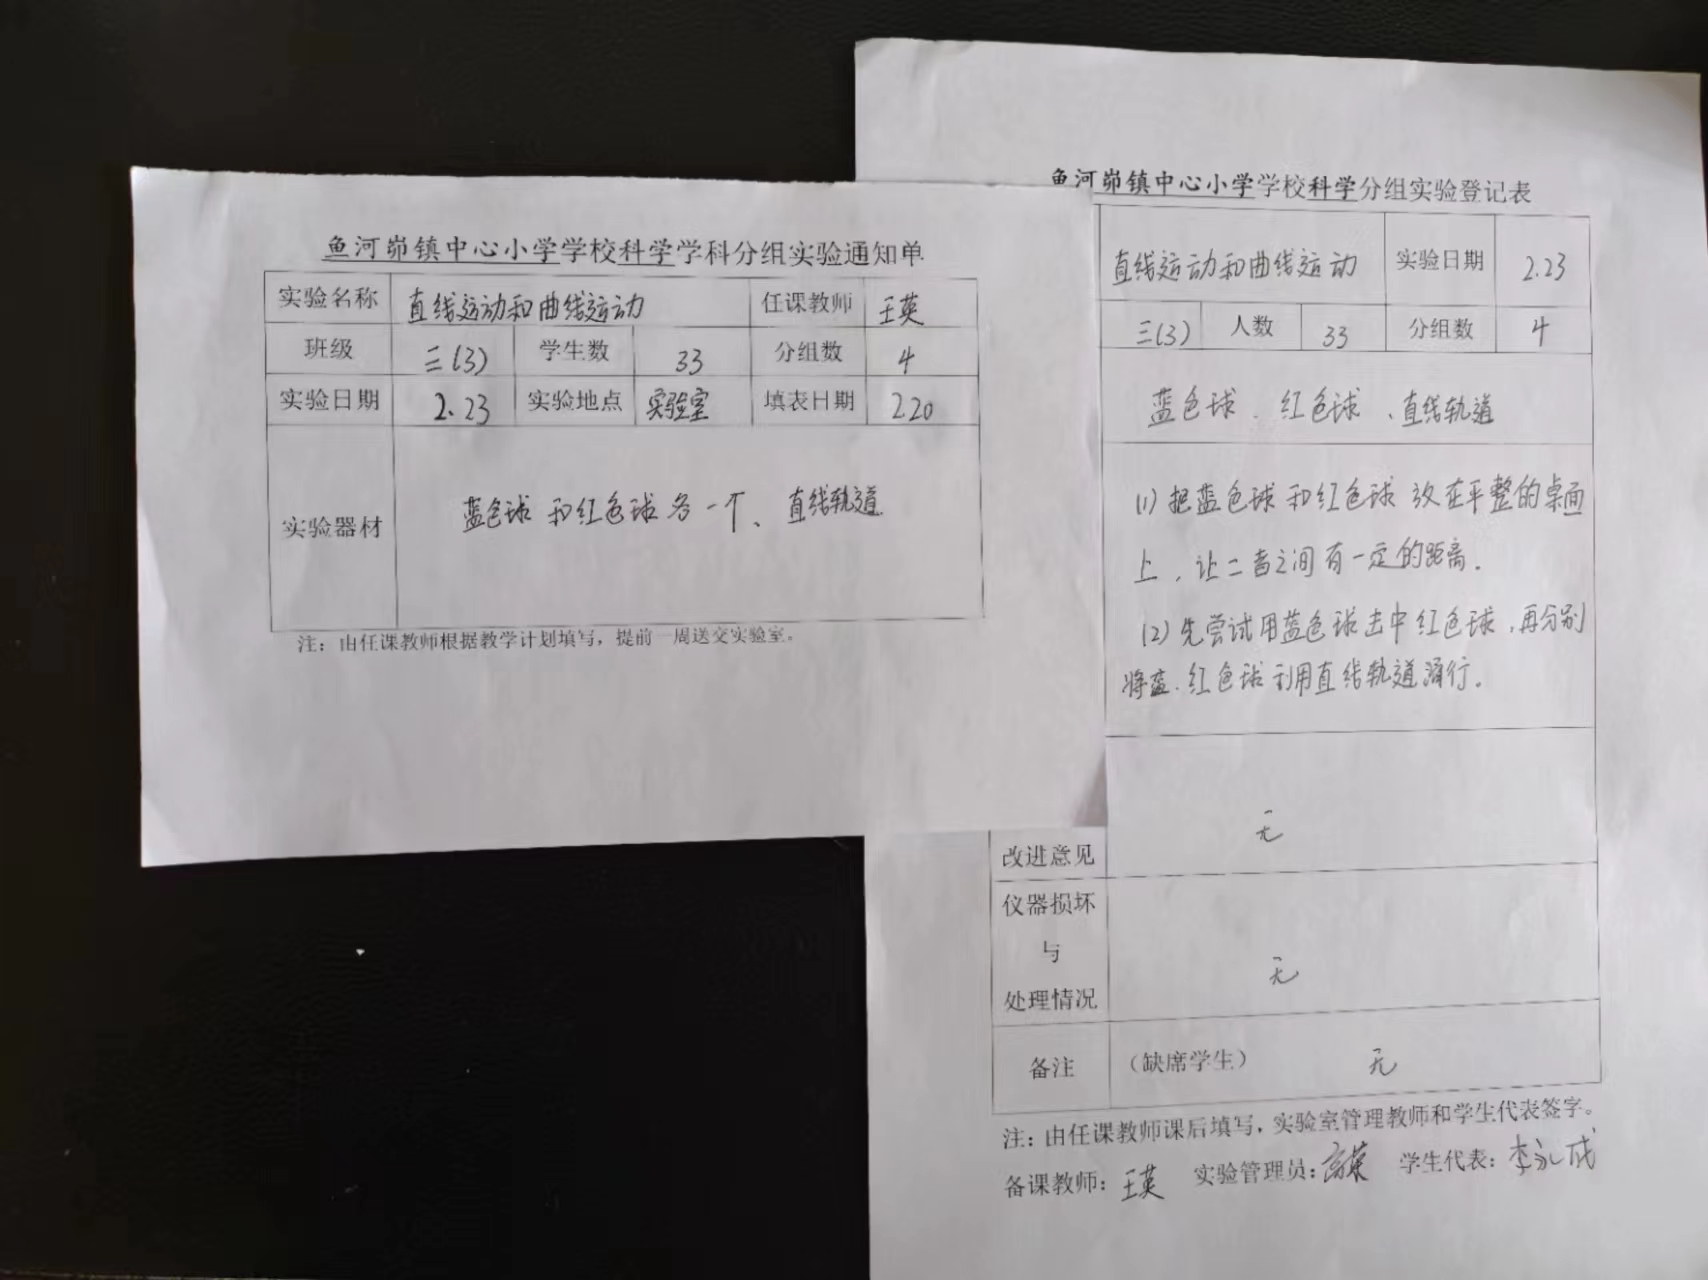 鱼河峁镇中心小学学校科学学科分组实验通知单
实验名称 直线运动和曲线运动 任课教师 王英
班级 三(3) 学生数 33 分组数 4
实验日期 2.23 实验地点 实验室 填表日期 2.20
实验器材 蓝色球和红色球各一个、直线轨道
注：由任课教师根据教学计划填写，提前一周送交实验室。
鱼河峁镇中心小学学校科学分组实验登记表
直线运动和曲线运动 实验日期 2.23
三(3) 人数 33 分组数 4
蓝色球、红色球、直线轨道
(1)把蓝色球和红色球放在平整的桌面
上，让二者之间有一定的距离.
(2)先尝试用蓝色球击中红色球，再分别
将蓝.红色球利用直线轨道滑行.
无
改进意见
仪器损坏
与
处理情况
无
备注 （缺席学生） 无
注：由任课教师课后填写，实验室管理教师和学生代表签字。
备课教师：王英 实验管理员：高英 学生代表：李永成